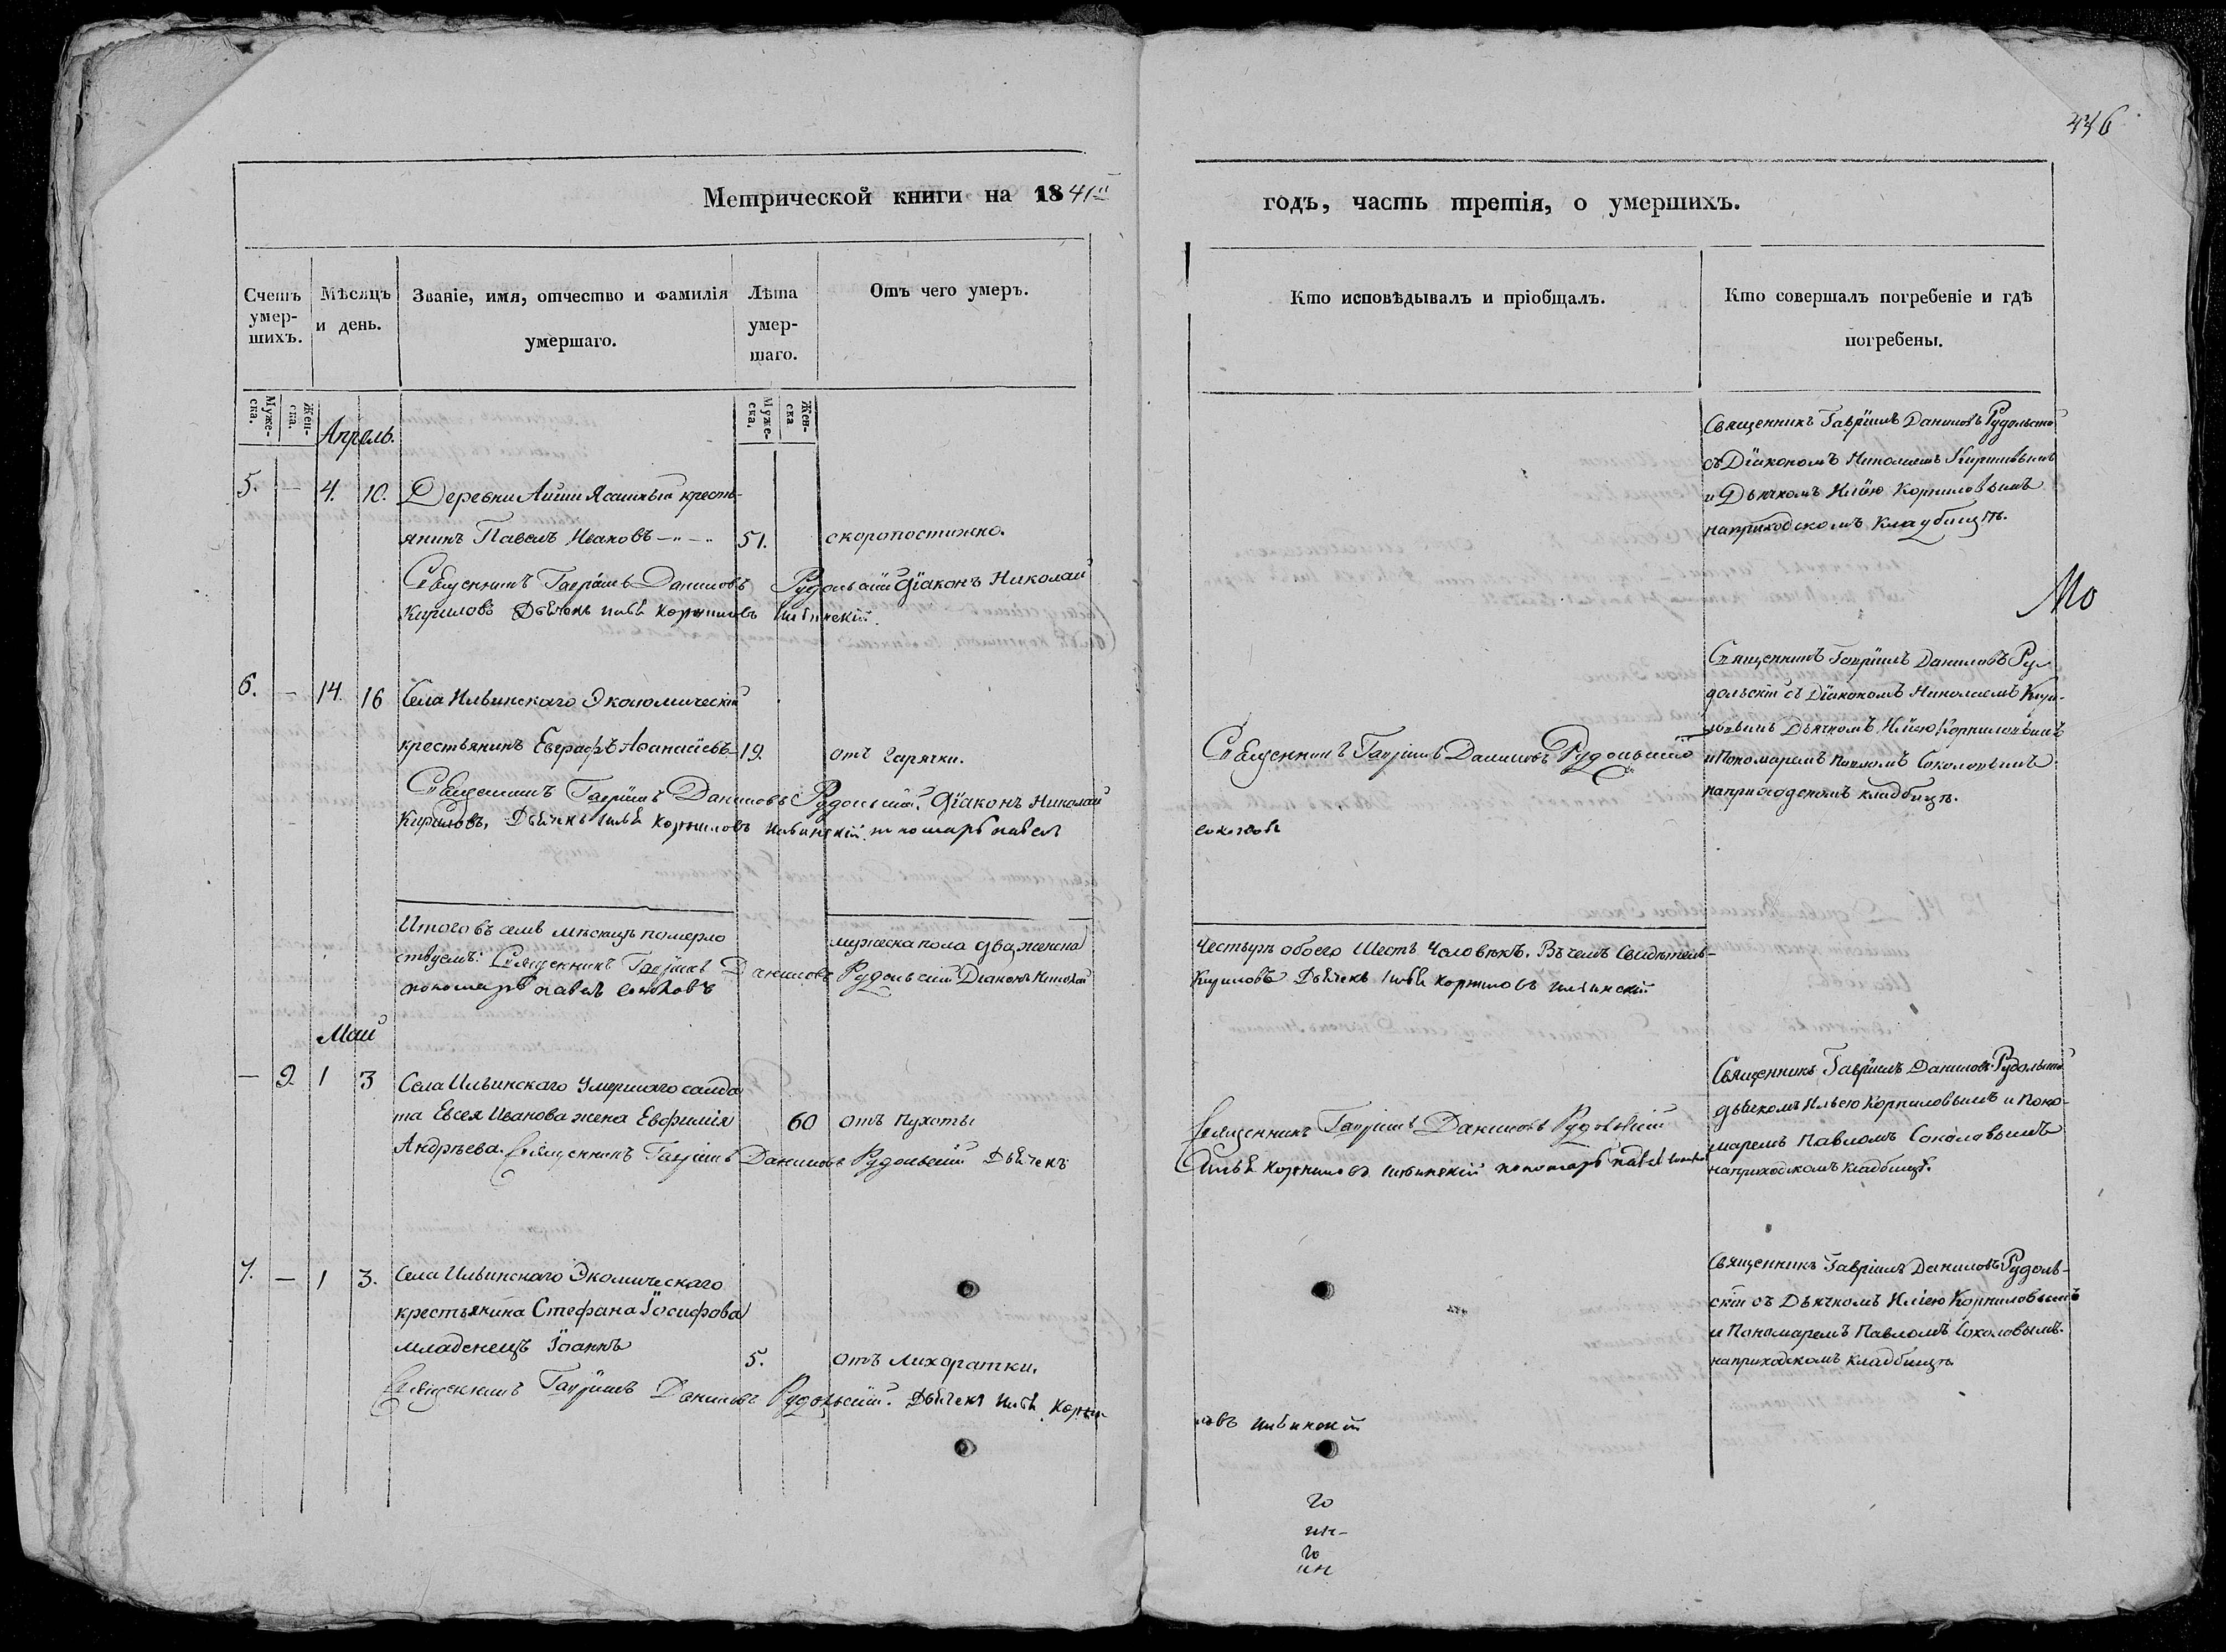 446
Метрической книги на 1841й
годъ, часть третія, о умершихъ.
Счетъ умер-шихъ.
Мѣсяцъ и день.
Званіе, имя, отчество и фамилія умершаго.
Лѣта умер-шаго.
Отъ чего умеръ.
Кто исповѣдывалъ и пріобщалъ.
Кто совершалъ погребеніе и гдѣ погребены.
Муже-ска.
Жен-ска.
Муже-ска.
Жен-ска
Апрель.
5. — 4. 10. Деревни кресть-
янинъ Павелъ Ивановъ 51. скоропостижно.
Священникъ Гавріилъ Даниловъ Рудольскій
съ Діакономъ Николаемъ Кириловымъ
и Дьячкомъ Иліею Корниловымъ
наприходскомъ кладбищѣ.
Священникъ Гавріилъ Даниловъ Рудольскій Діаконъ Николай
Кириловъ Дьячекъ Илья Корниловъ Ильинскій.
Мо
6. — 14. 16 Села Ильинскаго Экономическій
крестьянинъ Евграфъ Афанасьевъ 19. отъ гарячки.
Священникъ Гавріилъ Даниловъ Рудольскій
Священникъ Гавріилъ Даниловъ Ру-
дольскій съ Діакономъ Николаемъ Кири-
ловымъ Дьячкомъ Иліею Корниловымъ
и Пономаремъ Павломъ Соколовымъ
наприходскомъ кладбищѣ.
Священникъ Гавріилъ Даниловъ Рудольскій. Діаконъ Николай
Кириловъ, Дьячекъ Илья Корниловъ Ильинскій. пономарь павел
соколовъ
Итого въ семъ мѣсяцѣ померло мужеска пола два женска
четыре обоего шесть человѣкъ. Въ чемъ свидѣтель-
ствуемъ: Священникъ Гавріилъ Даниловъ Рудольскій Діаконъ Николай
Кириловъ Дьячекъ Илья Корниловъ Ильинскій
пономарь павелъ соколовъ
Май
— 9. 1 3 Села Ильинскаго умершаго салда
та Евсея Иванова жена Евфимія 60 отъ пухоты
Андрѣева. Священникъ Гавріилъ Даниловъ Рудольскій Дьячекъ
Священникъ Гавріилъ Даниловъ Рудольскій
Илья Корниловъ Ильинскій пономарь павел
Священникъ Гавріилъ Даниловъ Рудольскій
дьячкомъ Ильею Корниловымъ и Поно-
маремъ Павломъ Соколовымъ
наприходскомъ кладбищѣ.
7. — 1 3. Села Ильинскаго Экомическаго
крестьянина Стефана Іосифова
младенецъ Іоаннъ 5. отъ лихоратки.
Священникъ Гавріилъ Даниловъ Рудоль-
скій съ Дьячкомъ Иліею Корниловымъ
и Пономаремъ Павломъ Соколовымъ.
наприходскомъ кладбищѣ
Священникъ Гавріилъ Даниловъ Рудольскій. Дьячекъ Илья Корни
ловъ Ильинскій
го
ин-
го
ин